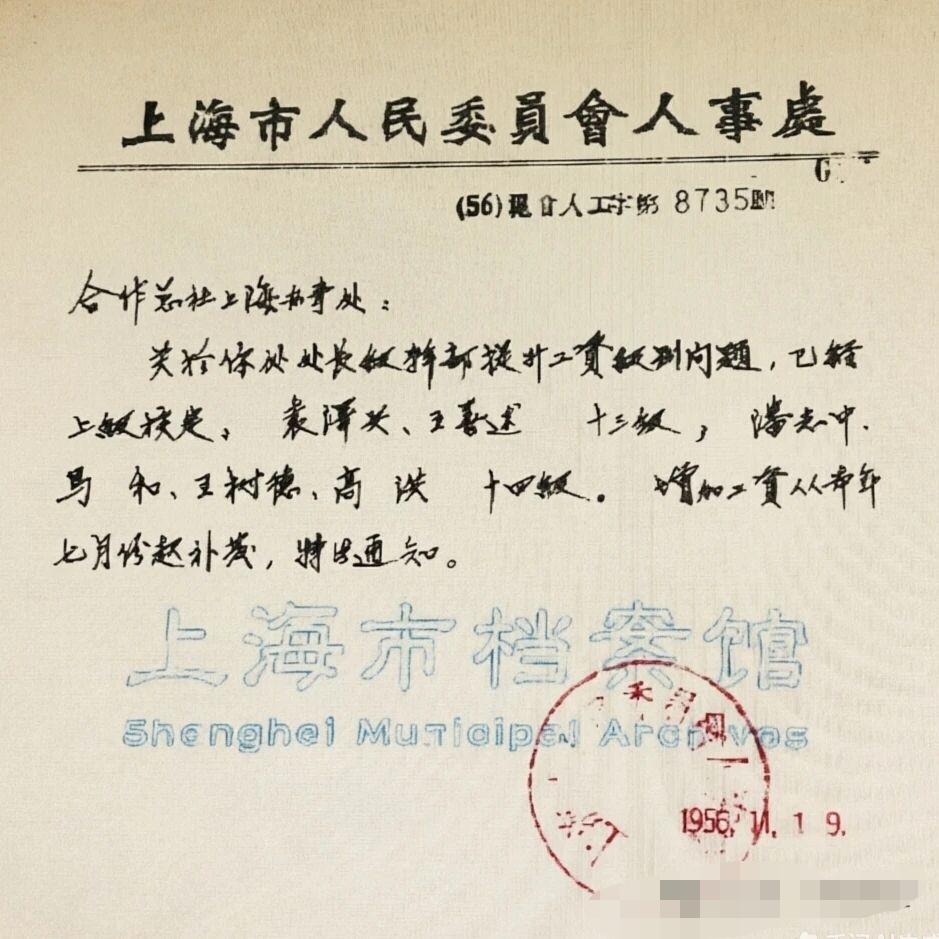 上海市人民委員會人事處
(56) 會人工字第 8735
合作总社上海办事处：
关於你处处长級幹部提升工資級别问題，已經
上級核定，袁澤兴、王喜述 十三級，潘志中、
馬和、王树德、高洪 十四級。增加工資从本年
七月份起补发，特此通知。
上海市档案馆
Shanghai Municipal Archives
1956. 11. 1 9.